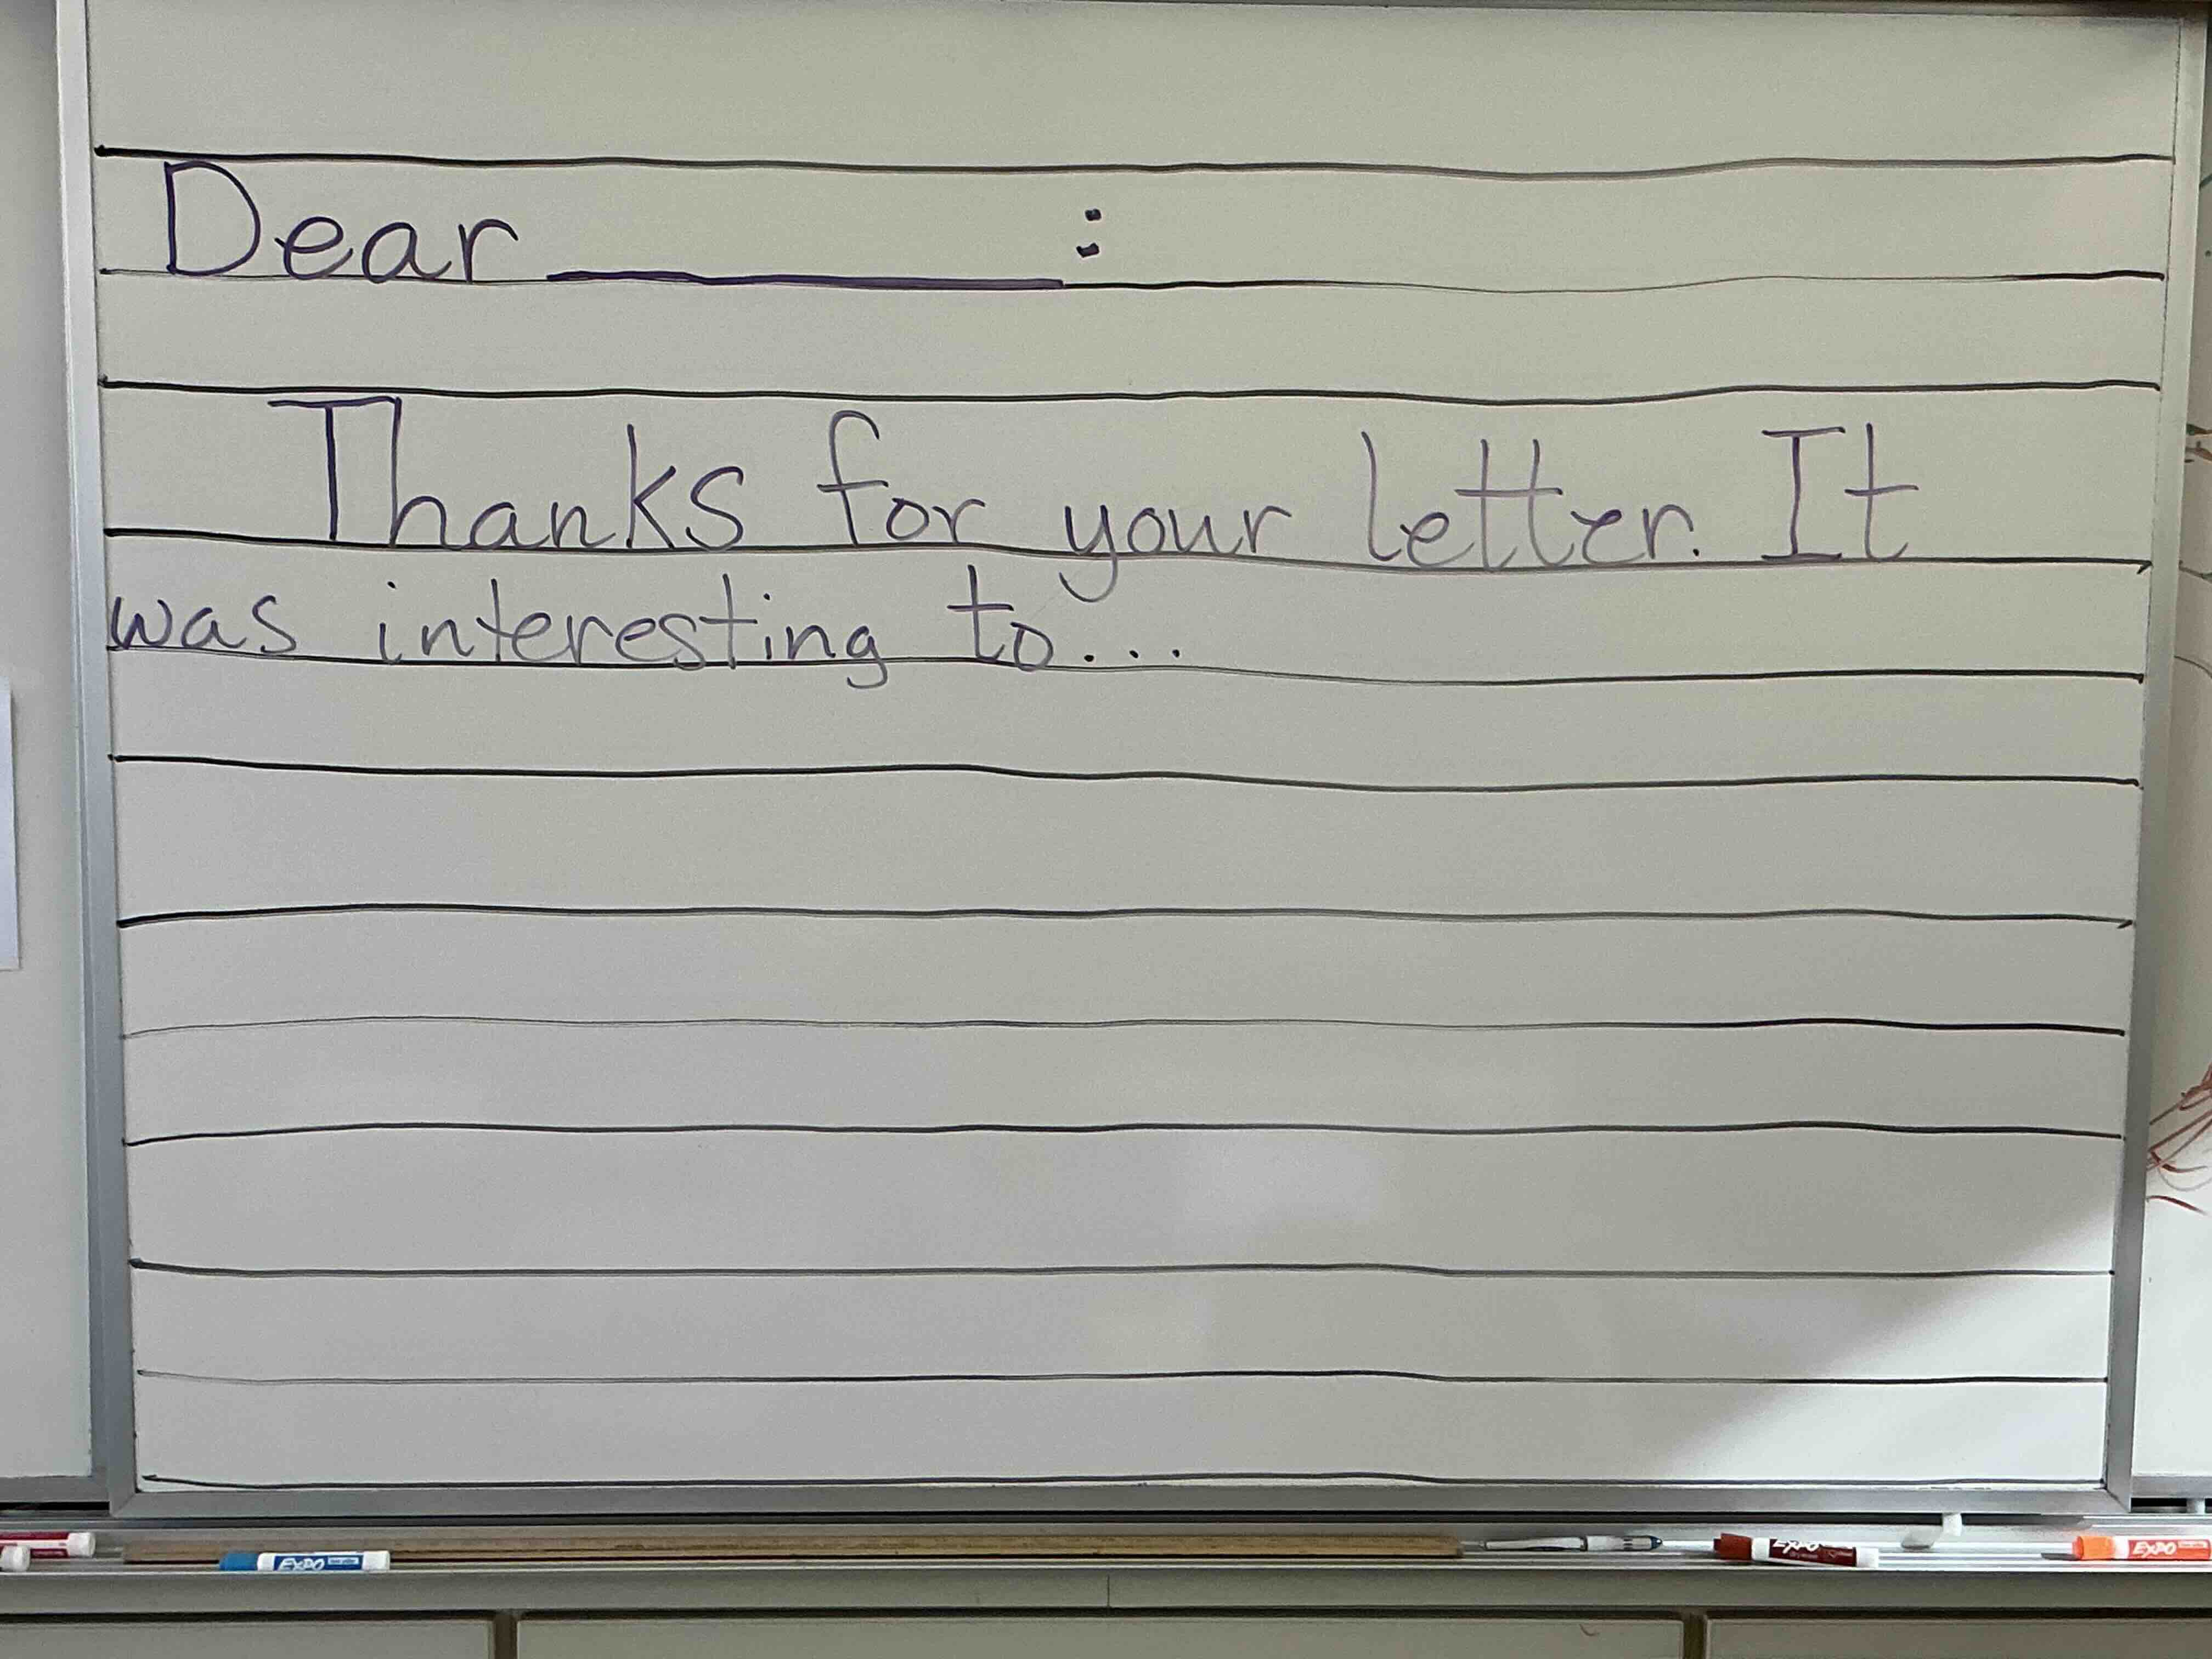 Dear ________ :
Thanks for your letter. It
was interesting to...
EXPO
EXPO
EXPO